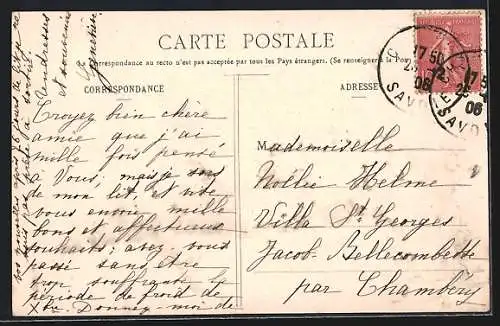 CARTE POSTALE
La Correspondance au recto n'est pas acceptée par tous les Pays étrangers. (Se renseigner à la Poste)
CORRESPONDANCE
ADRESSE
Croyez bien chère
amie que j'ai
mille fois pensé
à Vous; mais je sors
de mon lit, et vite
vous envoie mille
bons et affectueux
souhaits; avez-vous
passé sans être
trop souffrante la
période de froid de
Donnez-moi de
tendresses
et souvenir
Mademoiselle
Nollie Helme
Villa St Georges
Jacob-Bellecombette
par Chambéry
17 50
06
SAVOIE
17 5
06
SAVO